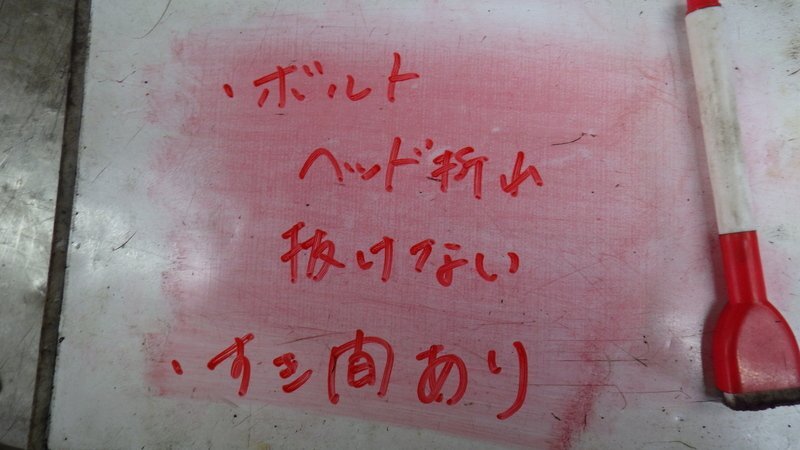 ・ボルト
ヘッド折れ
抜けない
・すき間あり